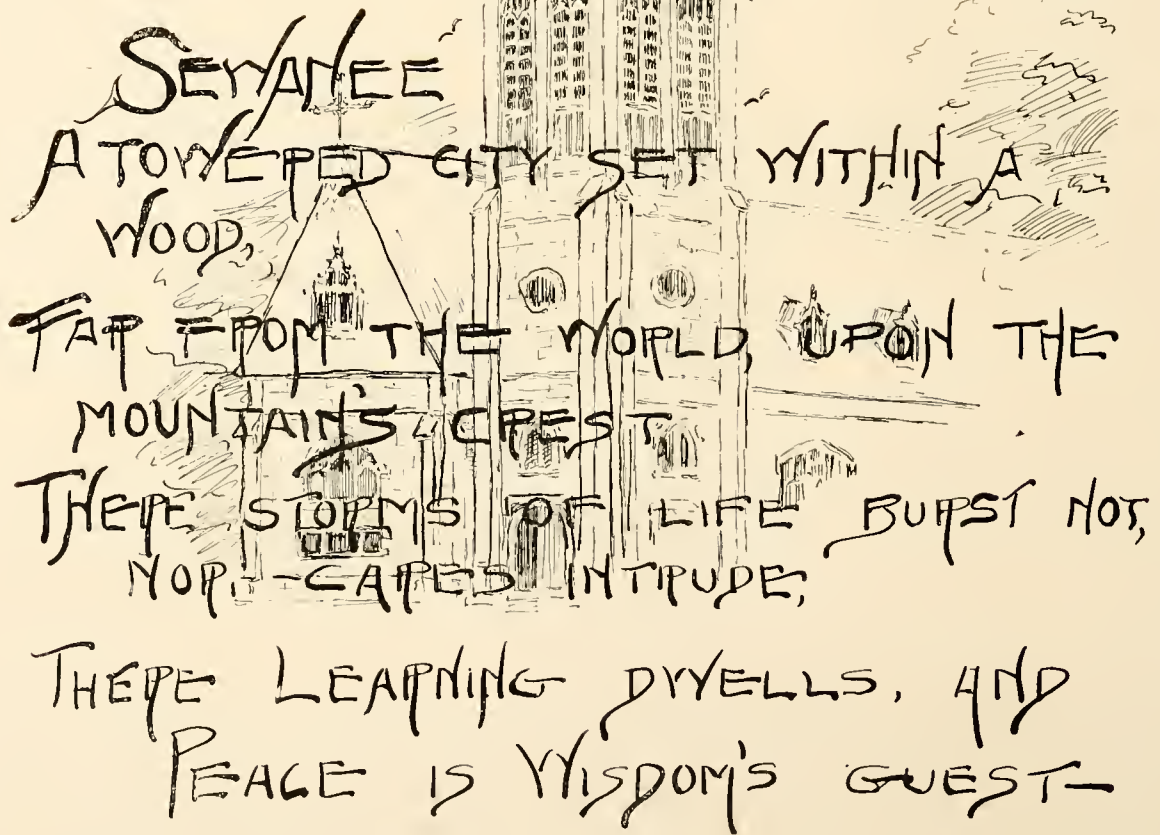 SEWANEE
A TOWERED CITY SET WITHIN A
WOOD,
FAR FROM THE WORLD, UPON THE
MOUNTAIN'S CREST
THERE STORMS OF LIFE BURST NOT,
NOR CARES INTRUDE,
THERE LEARNING DWELLS, AND
PEACE IS WISDOM'S GUEST—